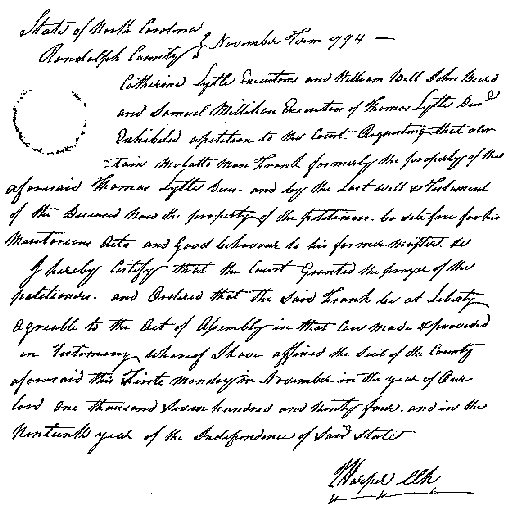 State of North Carolina
Randolph County } November Term 1794 —
Catherine Lytle Executrix and William Bell John Beard
and Samuel Millikan Executors of Thomas Lytle Decd
Exhibited a petition to the Court Requesting that a cer
=tain Mulatto Man Frank formerly the property of the
aforesaid Thomas Lytle Decd. and by the Last Will & Testament
of the Deceased the property of the petitioners. be sete free for his
Meritorious Acts and Good behaviour to his former master. &c
I hereby Certify that the Court Granted the prayer of the
petitioners. and Ordered that the Said Frank be at Liberty
Agreable to the Act of Assembly in that Case Made & provided
in Testimony Whereof I have affixed the Seal of the County
aforesaid this Monday in November in the year of Our
lord One thousand Seven hundred and Ninty four. and in the
Ninteenth year of the Independence of Said State
Harper Clk